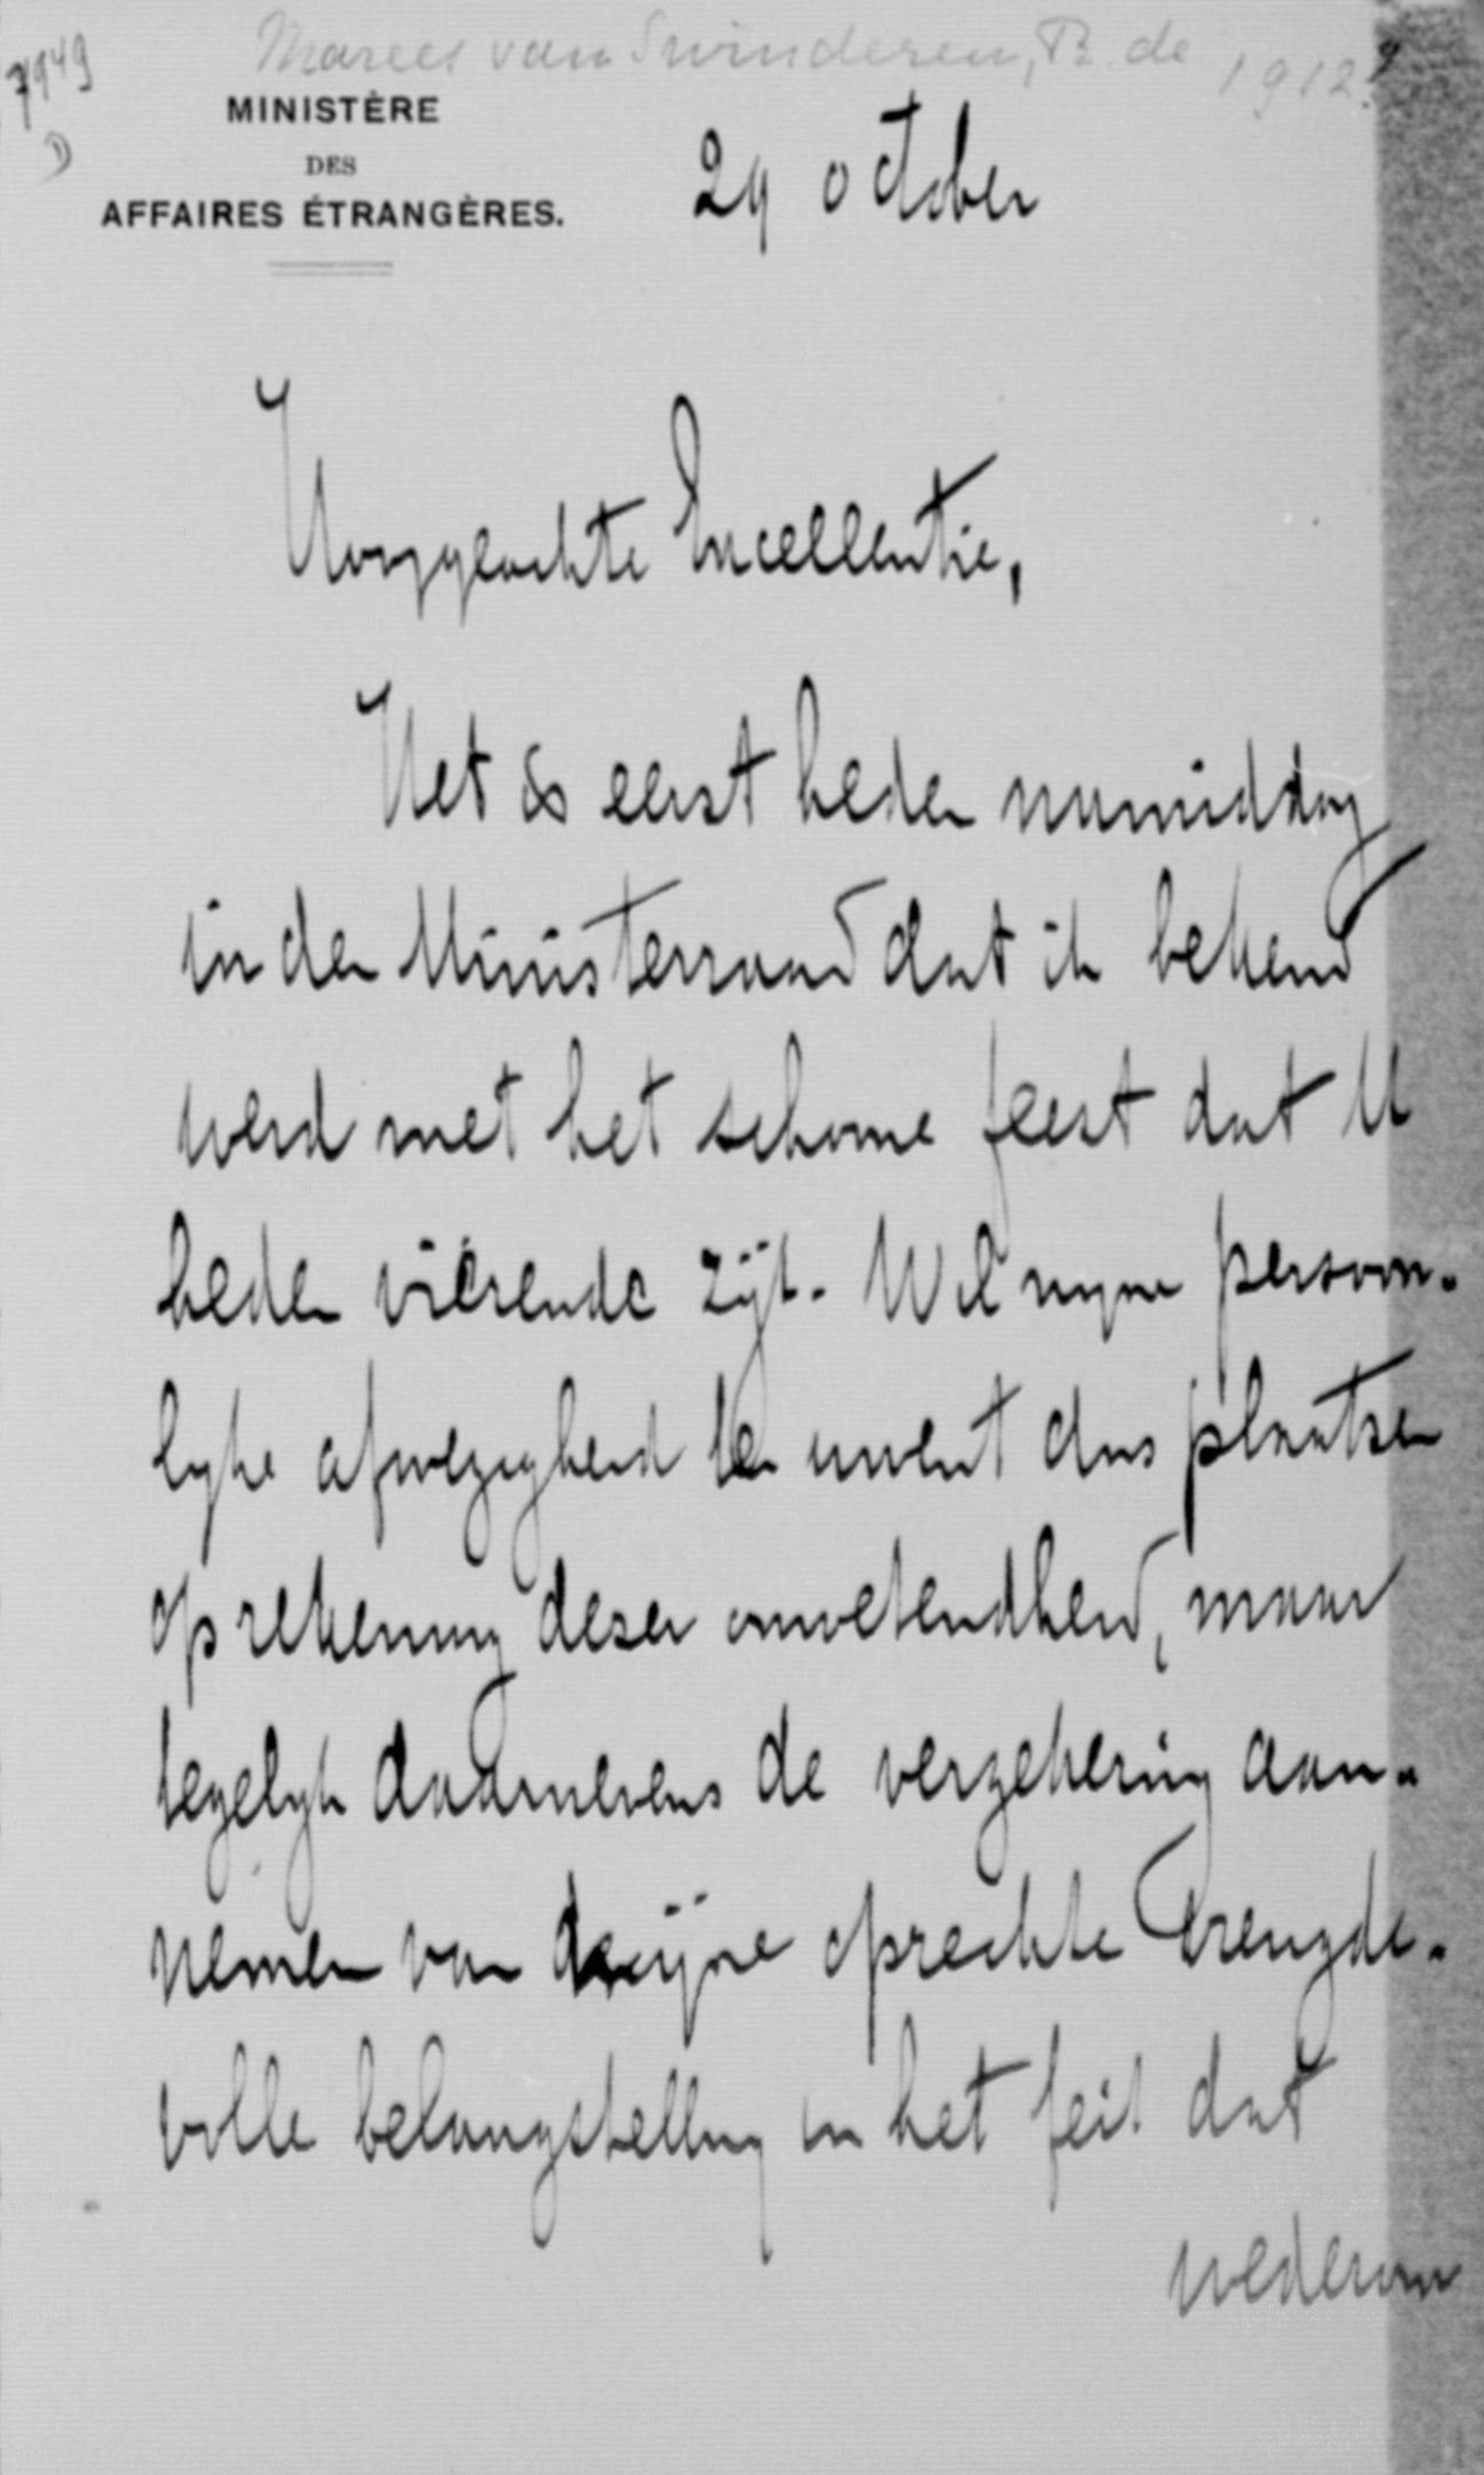 Marees van Swinderen, R. de 1912?
7949
D
MINISTÈRE
DES
AFFAIRES ÉTRANGÈRES.
29 october
Hooggeachte Excellentie,
Het is eerst heden namiddag
in den Ministerraad dat ik bekend
werd met het schoone feest dat U
heden vierende zijt. Wil mijne persoon-
lyke afwezigheid ten uwent dus plaatsen
op rekening dezer onwetendheid, maar
tegelyk daarnevens de verzekering aan-
nemen van mijne oprechte vreugde-
volle belangstelling in het feit dat
wederom